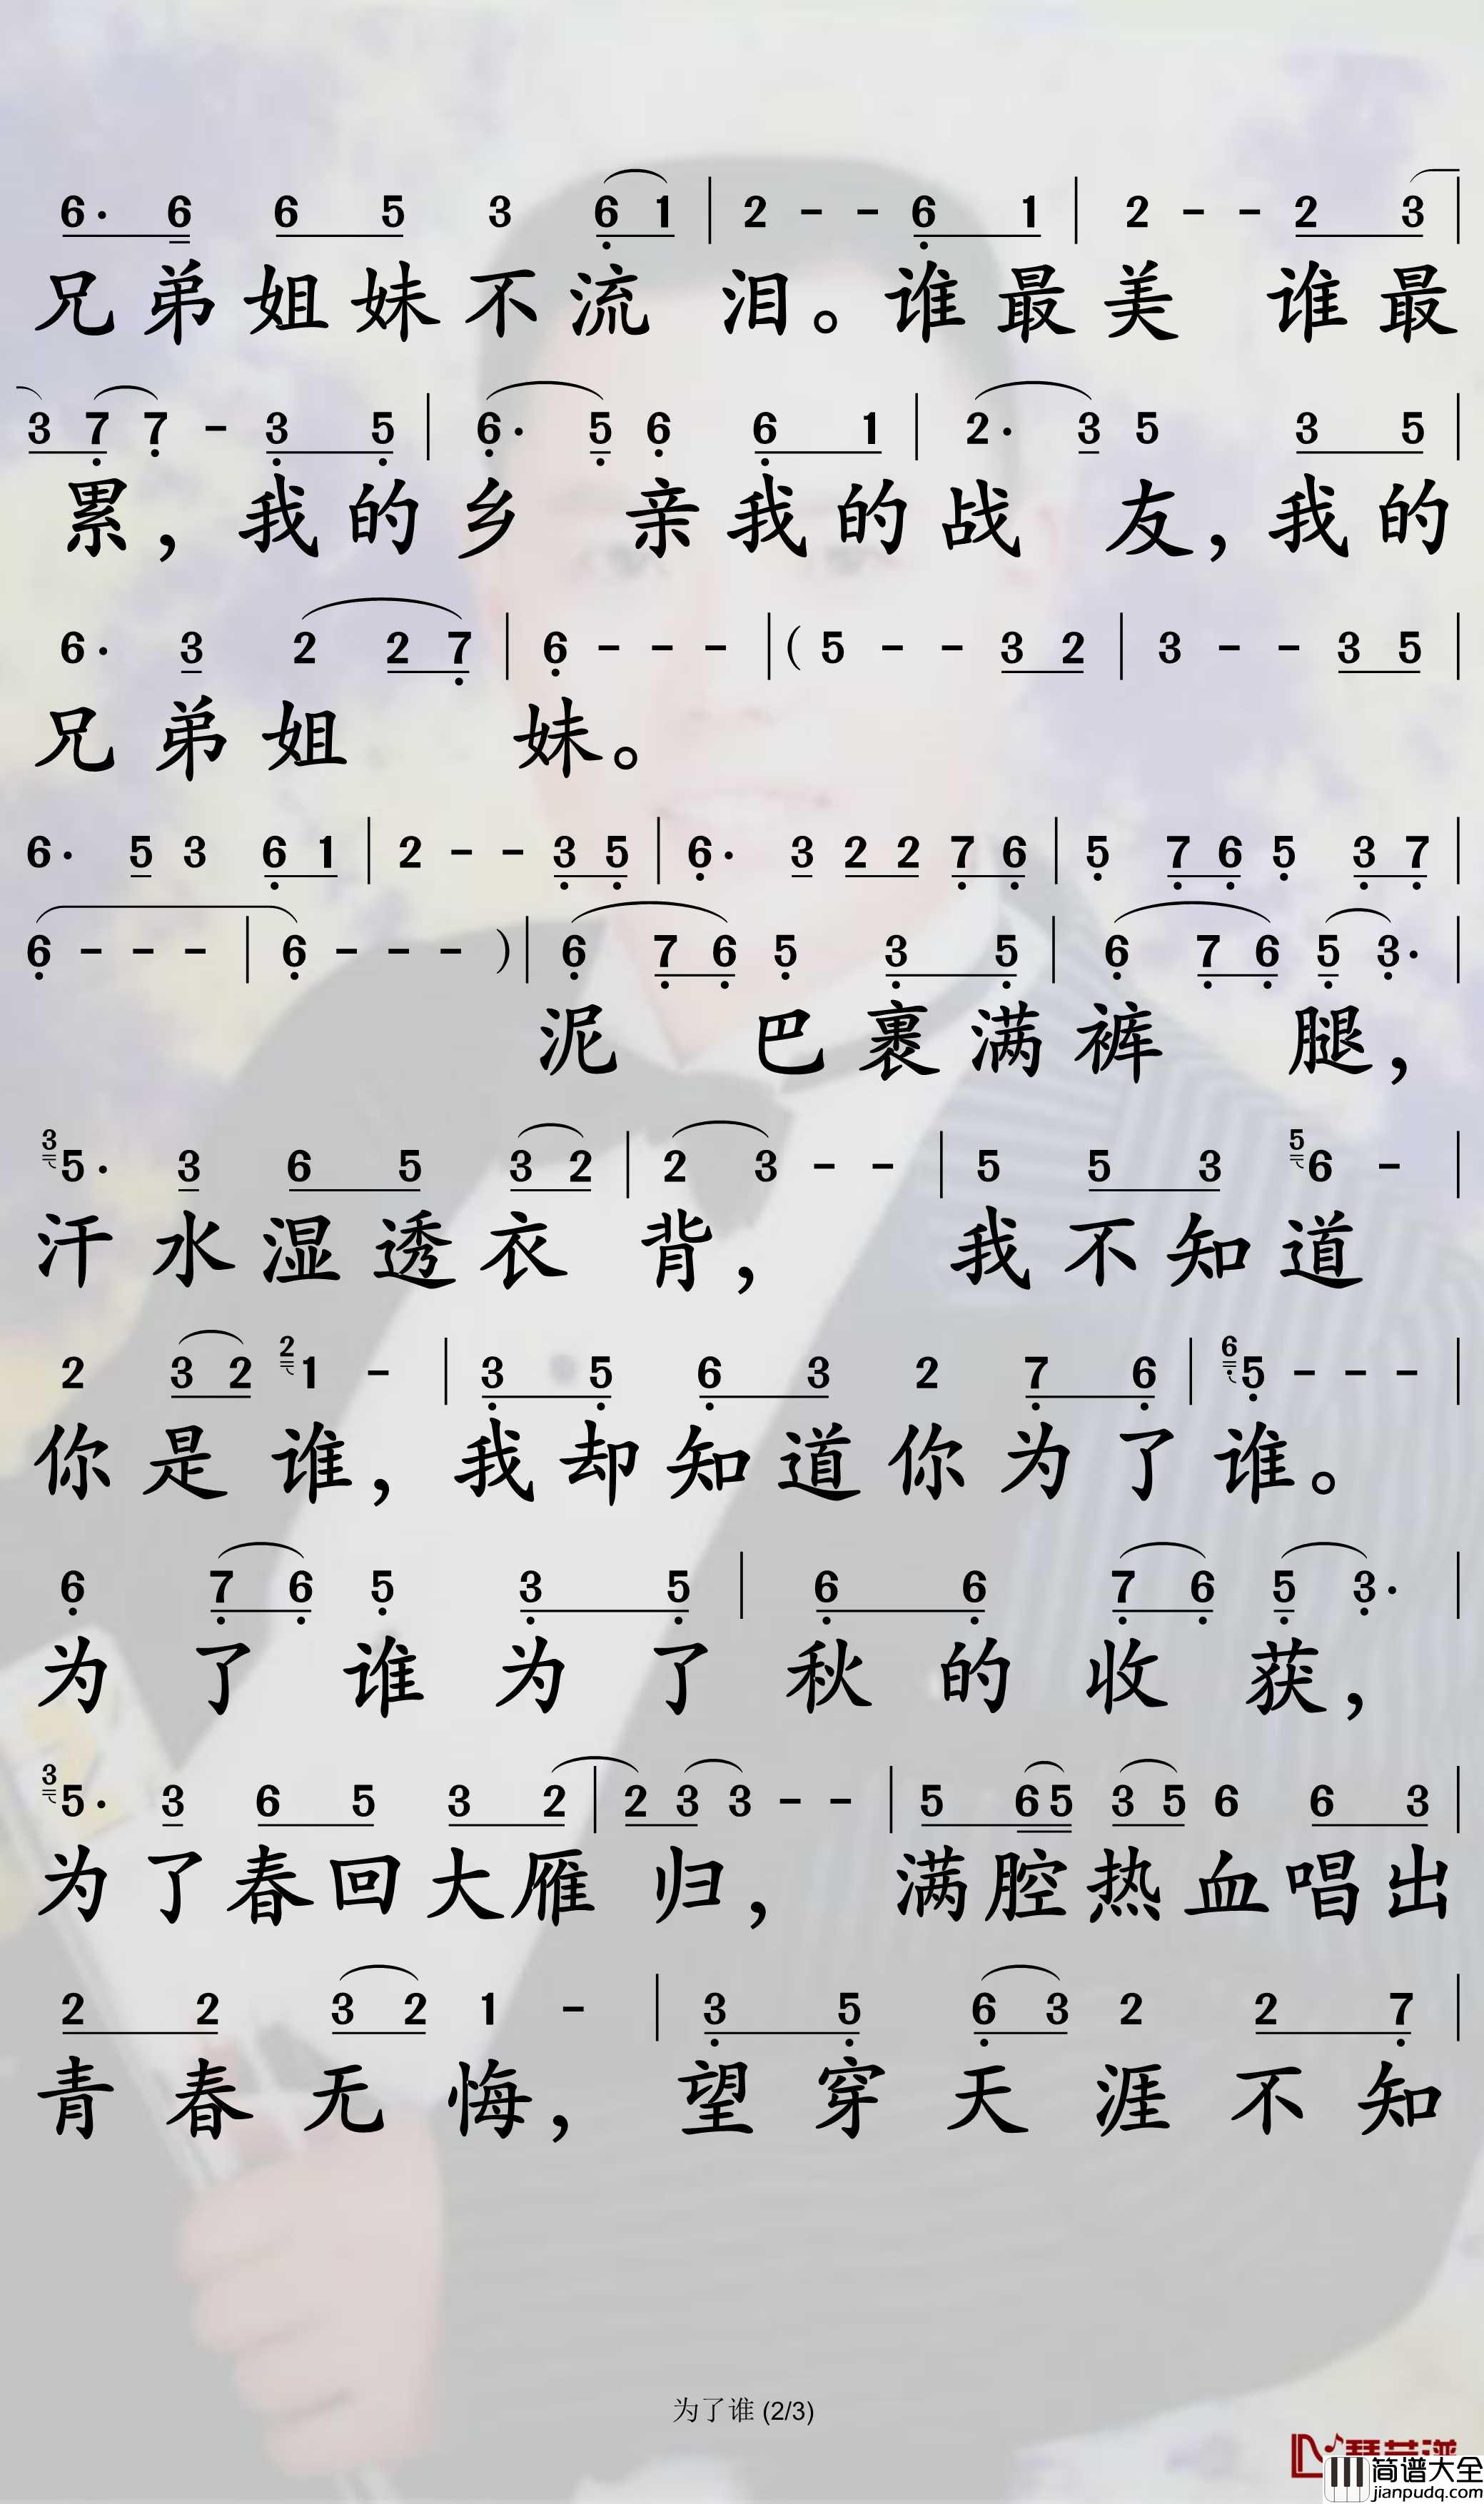 6· 6 6 5 3 6 1 | 2 - - 6 1 | 2 - - 2 3 |
兄弟姐妹不流 泪。谁最美 谁最
3 7 7 - 3 5 | 6· 5 6 6 1 | 2· 3 5 3 5 |
累，我的乡 亲我的战 友，我的
6· 3 2 2 7 | 6 - - - | ( 5 - - 3 2 | 3 - - 3 5 |
兄弟姐 妹。
6· 5 3 6 1 | 2 - - 3 5 | 6· 3 2 2 7 6 | 5 7 6 5 3 7 |
6 - - - | 6 - - - ) | 6 7 6 5 3 5 | 6 7 6 5 3· |
泥 巴裹满裤 腿，
3 5· 3 6 5 3 2 | 2 3 - - | 5 5 3 5 6 - |
汗水湿透衣 背， 我不知道
2 3 2 2 1 - | 3 5 6 3 2 7 6 | 6 5 - - - |
你是谁，我却知道你为了谁。
6 7 6 5 3 5 | 6 6 7 6 5 3· |
为了谁为了秋的收获，
3 5· 3 6 5 3 2 | 2 3 3 - - | 5 6 5 3 5 6 6 3 |
为了春回大雁 归， 满腔热血唱出
2 2 3 2 1 - | 3 5 6 3 2 2 7 |
青春无悔， 望穿天涯不知
为了谁 (2/3)
简谱大全
jianpudq.com